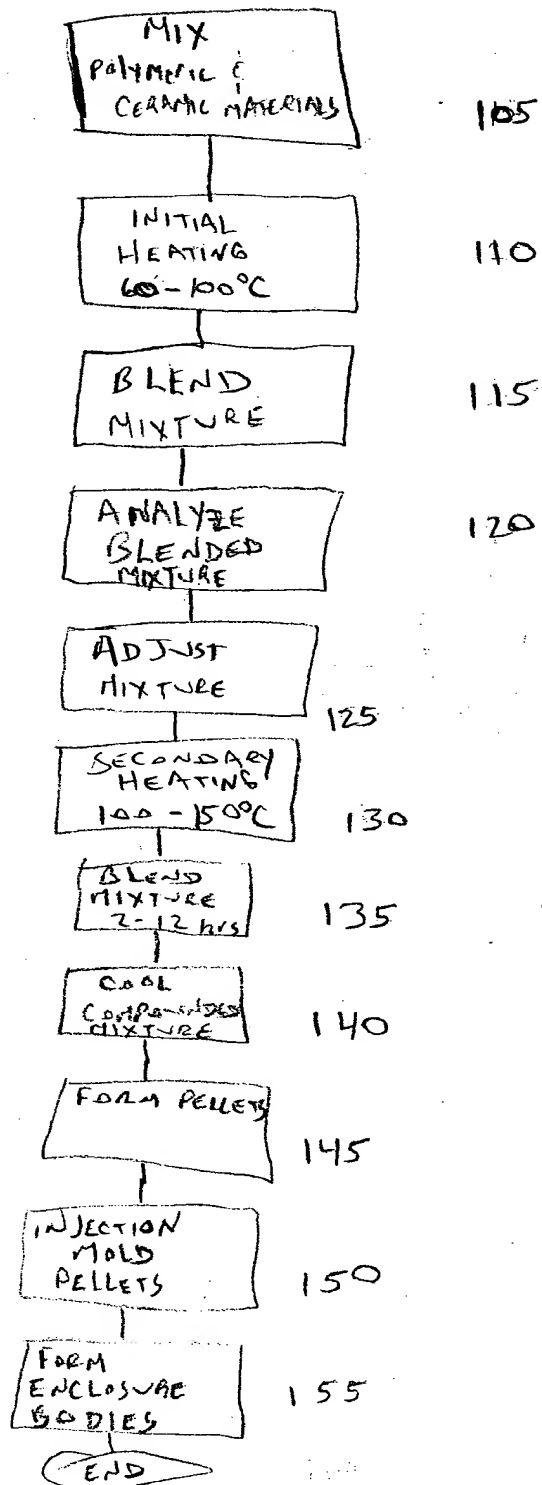 MIX
POLYMERIC &
CERAMIC MATERIALS
105
INITIAL
HEATING
60-100°C
110
BLEND
MIXTURE
115
ANALYZE
BLENDED
MIXTURE
120
ADJUST
MIXTURE
125
SECONDARY
HEATING
100-150°C
130
BLEND
MIXTURE
2-12 hrs
135
COOL
COMPOUNDED
MIXTURE
140
FORM PELLETS
145
INJECTION
MOLD
PELLETS
150
FORM
ENCLOSURE
BODIES
155
END